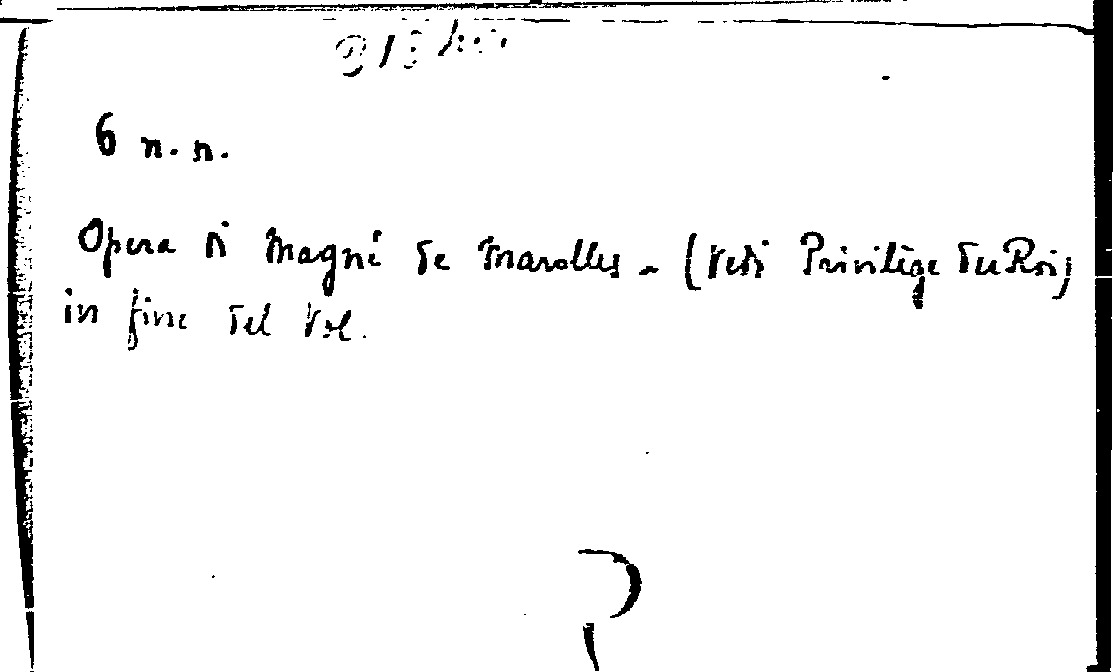 6 n. n.
Opera di Magné de Marolles. - (Vedi Privilège du Roi)
in fine del vol.